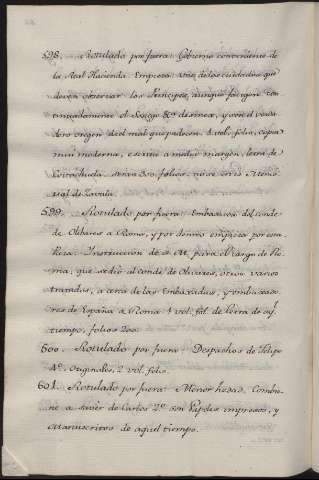 598. Rotulado por fuera: Govierno conveniente de
la Real Hacienda. Empieza: Uno de los cuidados que
deven observar los Principes, aunque fatiguen con-
tinuadamente el Sosiego &c.ª de sinea, y son el verda-
dero origen del mal que padecen. 1. vol. folio, copia
mui moderna, escrito a medio margen, letra de
Covachuela. tiene 350. folios.
rial de Zavala.
599. Rotulado por fuera: Embaxada del Conde
de Olibares a Roma, y por dentro empieza por esta
Pieza: Instruccion de S. M. para el cargo de Ro-
ma, que se dio al Conde de Olivares, otros varios
tratados, a cerca de las Embaxadas, y embaxado-
res de España a Roma. 1. vol. fol. de letra de aql.
tiempo, folios 200.
600. Rotulado por fuera: Despachos de Felipe
4º. Originales, 2. vol. folio.
601. Rotulado por fuera: Menor hedad. Combie-
ne a saver de Carlos 2º. con Papeles impresos, y
Manuscritos de aquel tiempo.